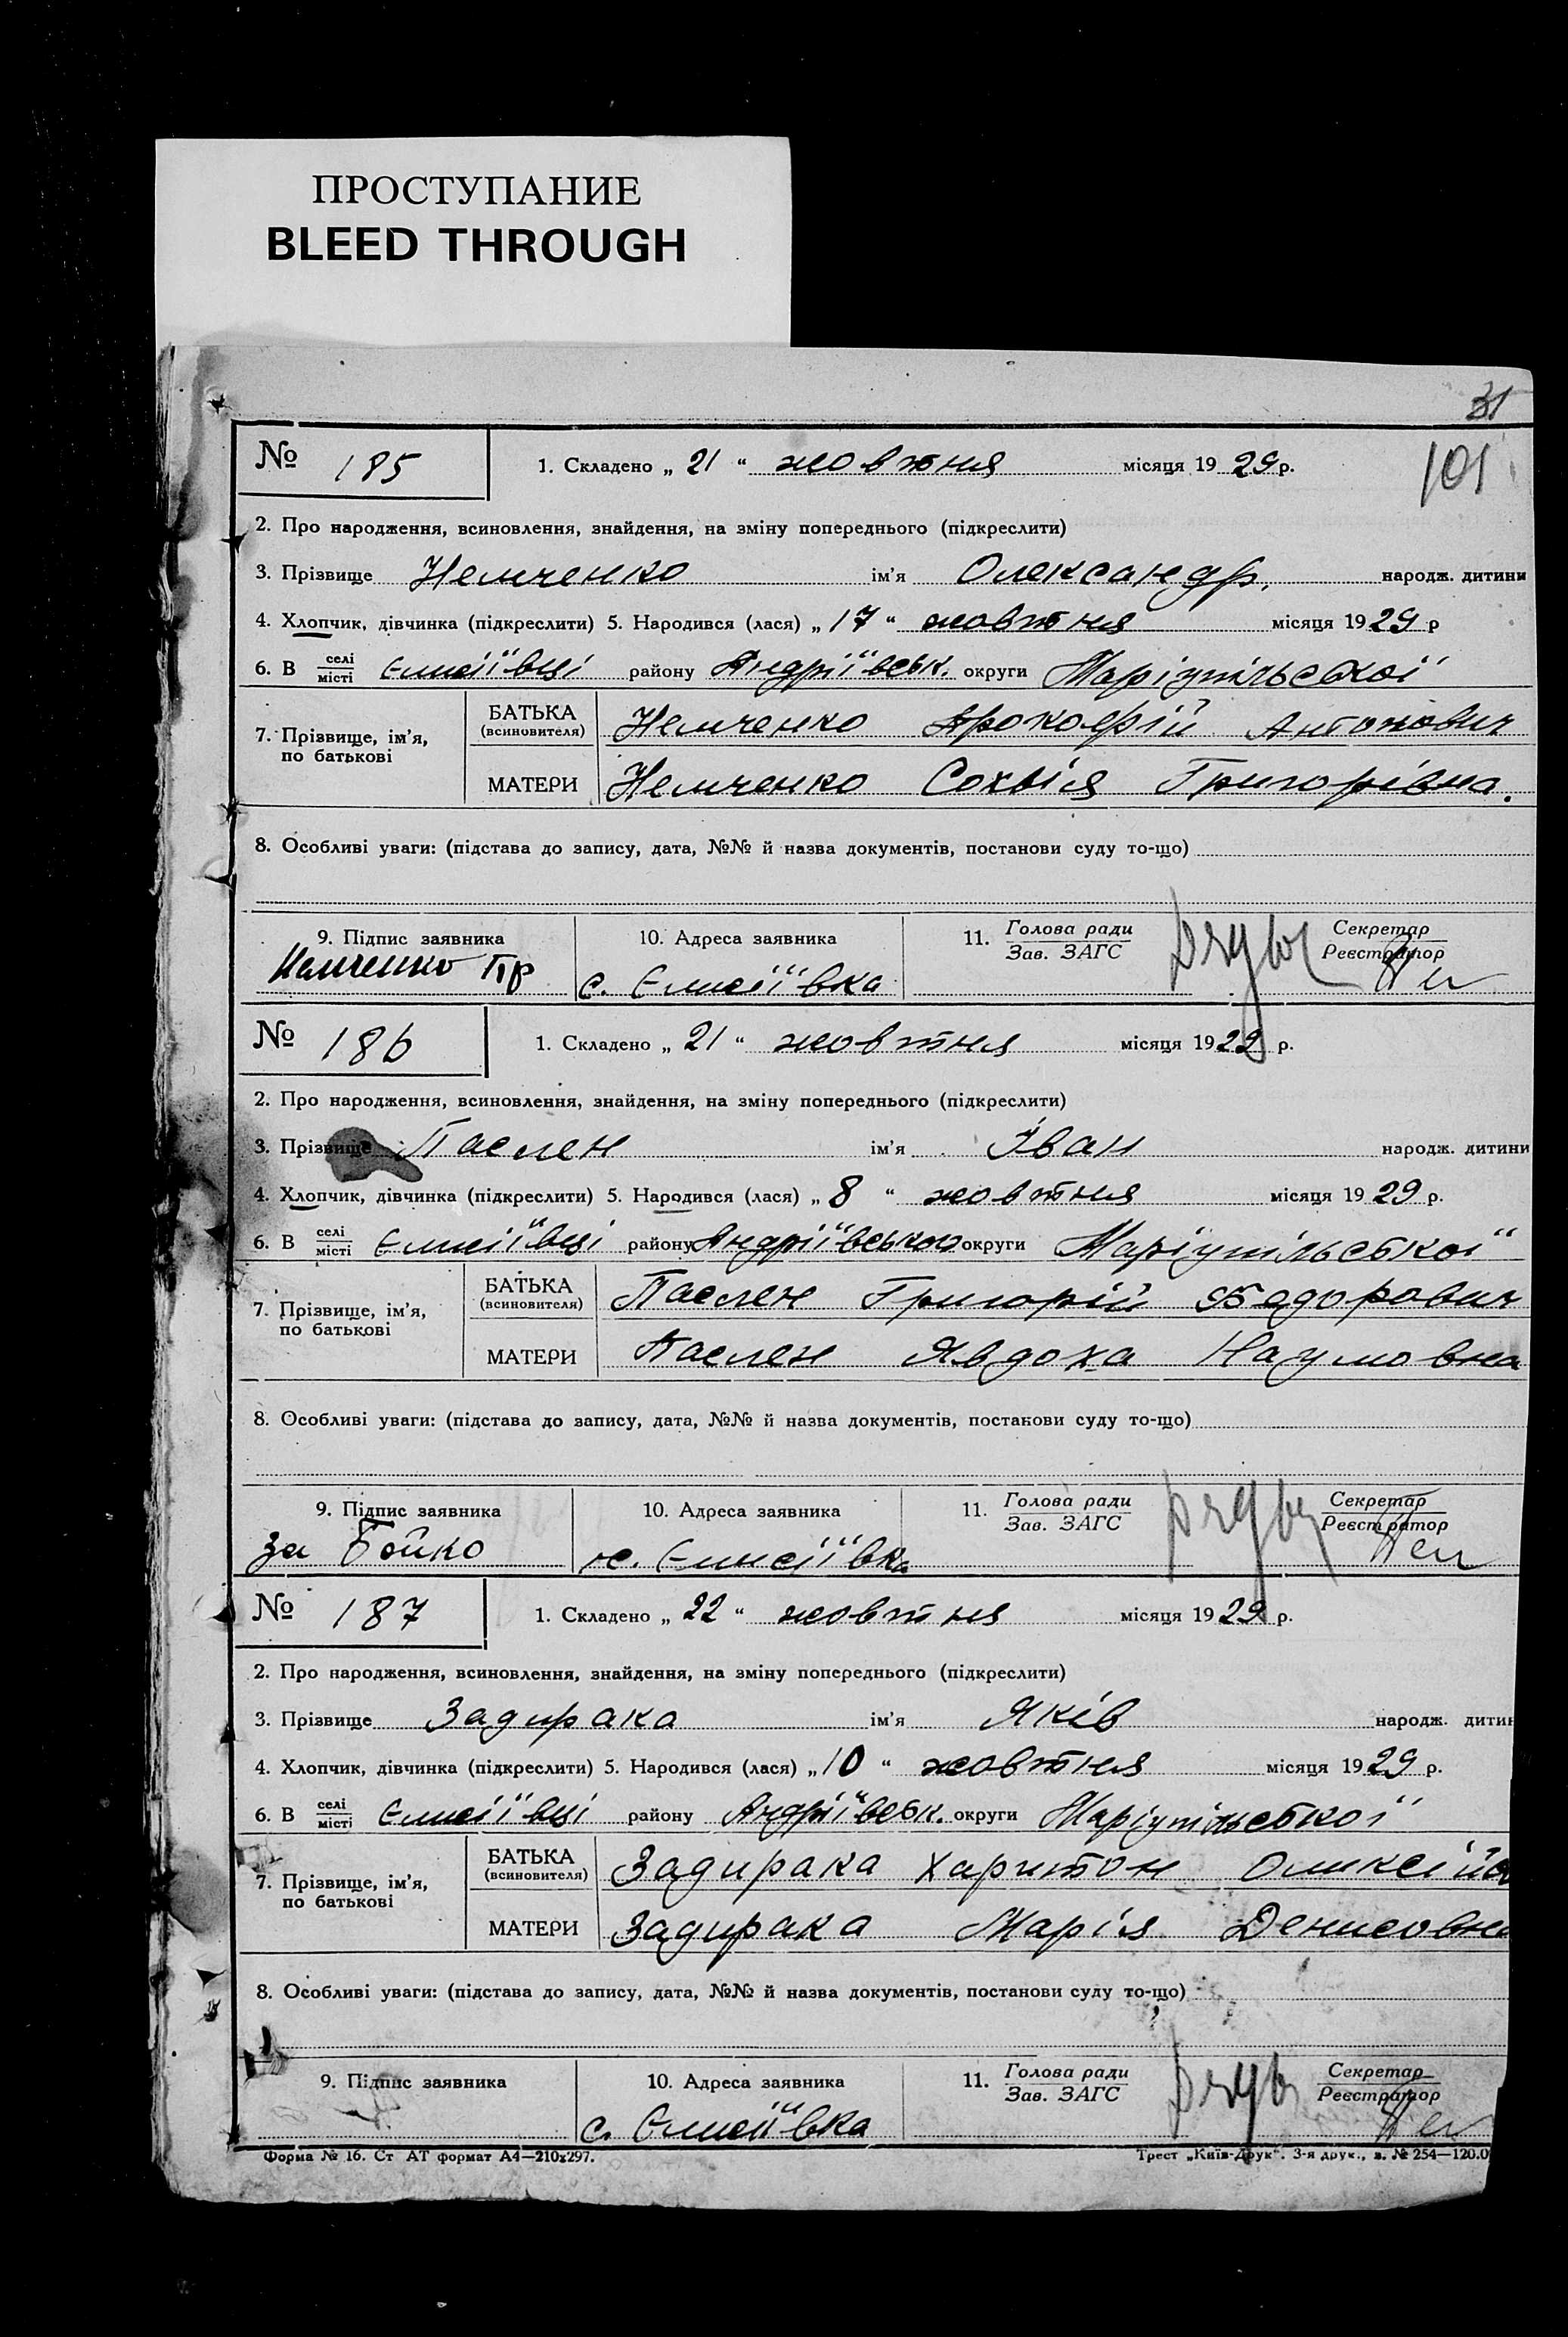 ПРОСТУПАНИЕ
BLEED THROUGH
31
101
№ 185 1. Складено „ 21 “ жовтня місяця 19 29 р.
2. Про народження, всиновлення, знайдення, на зміну попереднього (підкреслити)
3. Прізвище Немченко ім’я Олександр. народж. дитини
4. Хлопчик, дівчинка (підкреслити) 5. Народився (лася) „ 17 “ жовтня місяця 19 29 р
6. В селі місті Єлисіївці району Андріївськ. округи Маріупільської
7. Прізвище, ім’я, по батькові
БАТЬКА (всиновителя) Немченко Прокофій Антонович
МАТЕРИ Немченко Сохвія Григорівна.
8. Особливі уваги: (підстава до запису, дата, №№ й назва документів, постанови суду то-що)
9. Підпис заявника 10. Адреса заявника 11. Голова ради Зав. ЗАГС Секретар Реєстратор
Немченко Пр с. Єлисіївка
№ 186 1. Складено „ 21 “ жовтня місяця 19 29 р.
2. Про народження, всиновлення, знайдення, на зміну попереднього (підкреслити)
3. Прізвище Паслен ім’я Іван народж. дитини
4. Хлопчик, дівчинка (підкреслити) 5. Народився (лася) „ 8 “ жовтня місяця 19 29 р.
6. В селі місті Єлисіївці району Андріївського округи Маріупільської
7. Прізвище, ім’я, по батькові
БАТЬКА (всиновителя) Паслен Григорій Федорович
МАТЕРИ Паслен Явдоха Наумовна
8. Особливі уваги: (підстава до запису, дата, №№ й назва документів, постанови суду то-що)
9. Підпис заявника 10. Адреса заявника 11. Голова ради Зав. ЗАГС Секретар Реєстратор
За Бойко с. Єлисіївка
№ 187 1. Складено „ 22 “ жовтня місяця 19 29 р.
2. Про народження, всиновлення, знайдення, на зміну попереднього (підкреслити)
3. Прізвище Задирака ім’я Яків народж. дитин
4. Хлопчик, дівчинка (підкреслити) 5. Народився (лася) „ 10 “ жовтня місяця 19 29 р.
6. В селі місті Єлисіївці району Андріївськ. округи Маріупільської
7. Прізвище, ім’я, по батькові
БАТЬКА (всиновителя) Задирака Харитон Оликсійов
МАТЕРИ Задирака Марія Денисовна
8. Особливі уваги: (підстава до запису, дата, №№ й назва документів, постанови суду то-що)
9. Підпис заявника 10. Адреса заявника 11. Голова ради Зав. ЗАГС Секретар Реєстратор
с. Єлисіївка
Форма № 16. Ст АТ формат А4—210х297. Трест „Київ-Друк“. 3-я друк., з. № 254—120.0